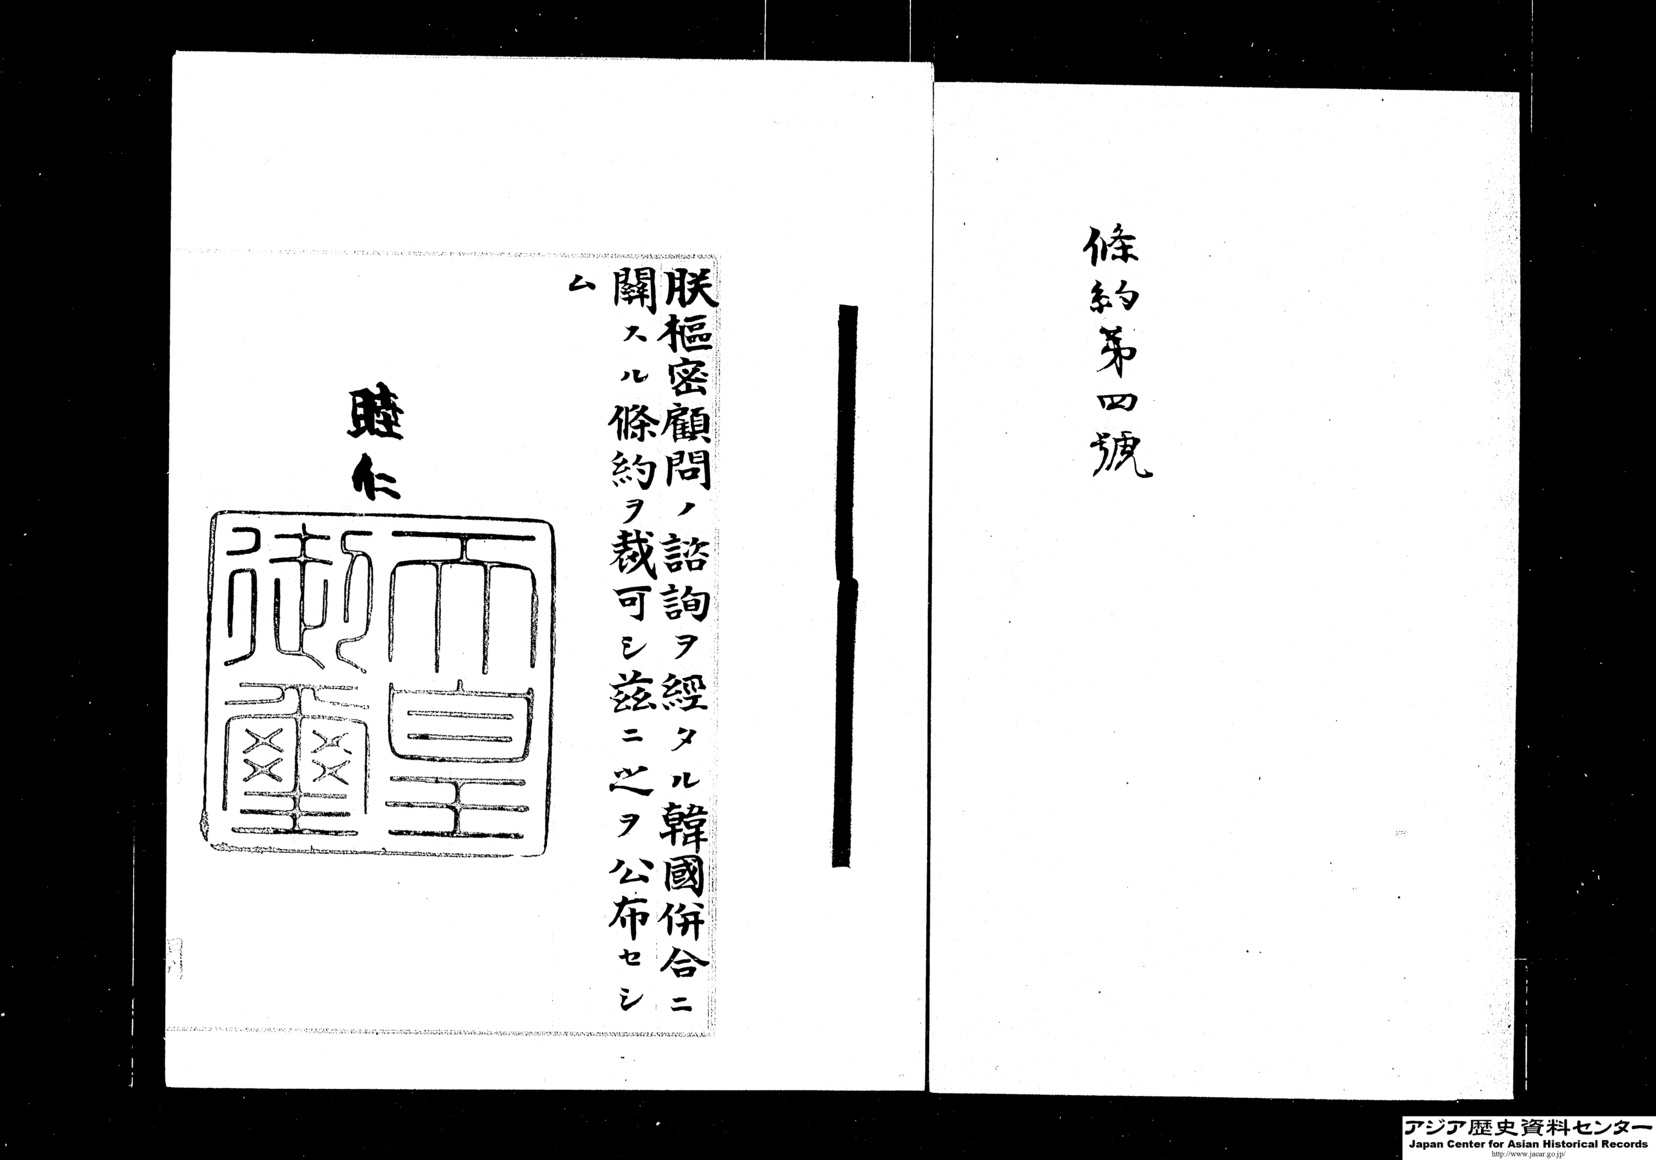 條約第四號
朕樞密顧問ノ諮詢ヲ經タル韓國併合ニ
關スル條約ヲ裁可シ茲ニ之ヲ公布セシ
ム
睦仁
天皇御璽
アジア歴史資料センター
Japan Center for Asian Historical Records
http://www.jacar.go.jp/